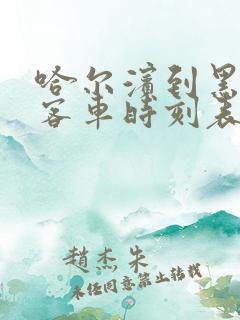 哈尔滨到黑
客车时刻表
趙杰朱
未经同意禁止转载